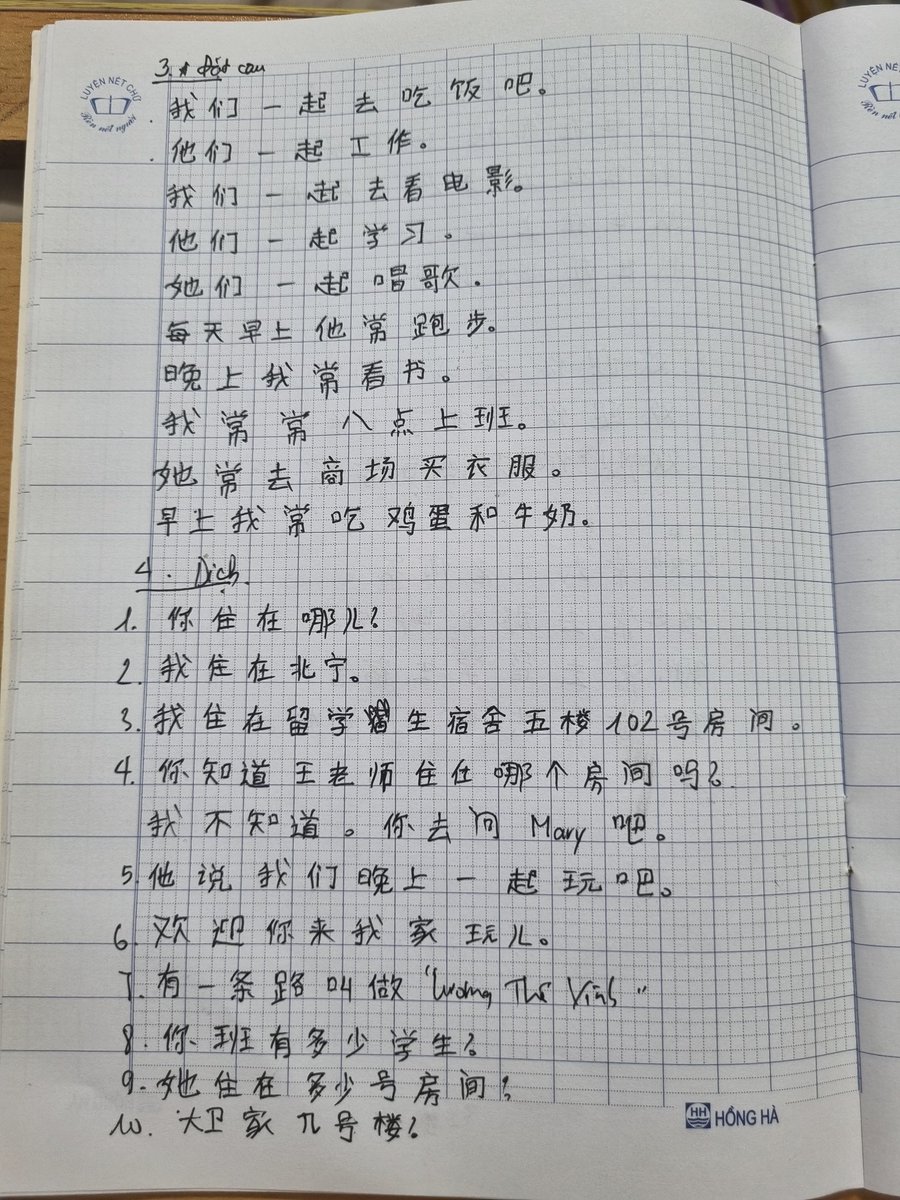 LUYỆN NÉT CHỮ
Rèn nết người
LUYỆN NÉT
3. * Đặt câu
我们一起去吃饭吧。
他们一起工作。
我们一起去看电影。
他们一起学习。
她们一起唱歌。
每天早上他常跑步。
晚上我常看书。
我常常八点上班。
她常去商场买衣服。
早上我常吃鸡蛋和牛奶。
4. Dịch
1. 你住在哪儿?
2. 我住在北宁。
3. 我住在留学生宿舍五楼102号房间。
4. 你知道王老师住在哪个房间吗?
我不知道。你去问 Mary 吧。
5. 他说我们晚上一起玩吧。
6. 欢迎你来我家玩儿。
7. 有一条路叫做 "Lương Thế Vinh"
8. 你班有多少学生?
9. 她住在多少号房间?
10. 大卫家几号楼?
HH HỒNG HÀ